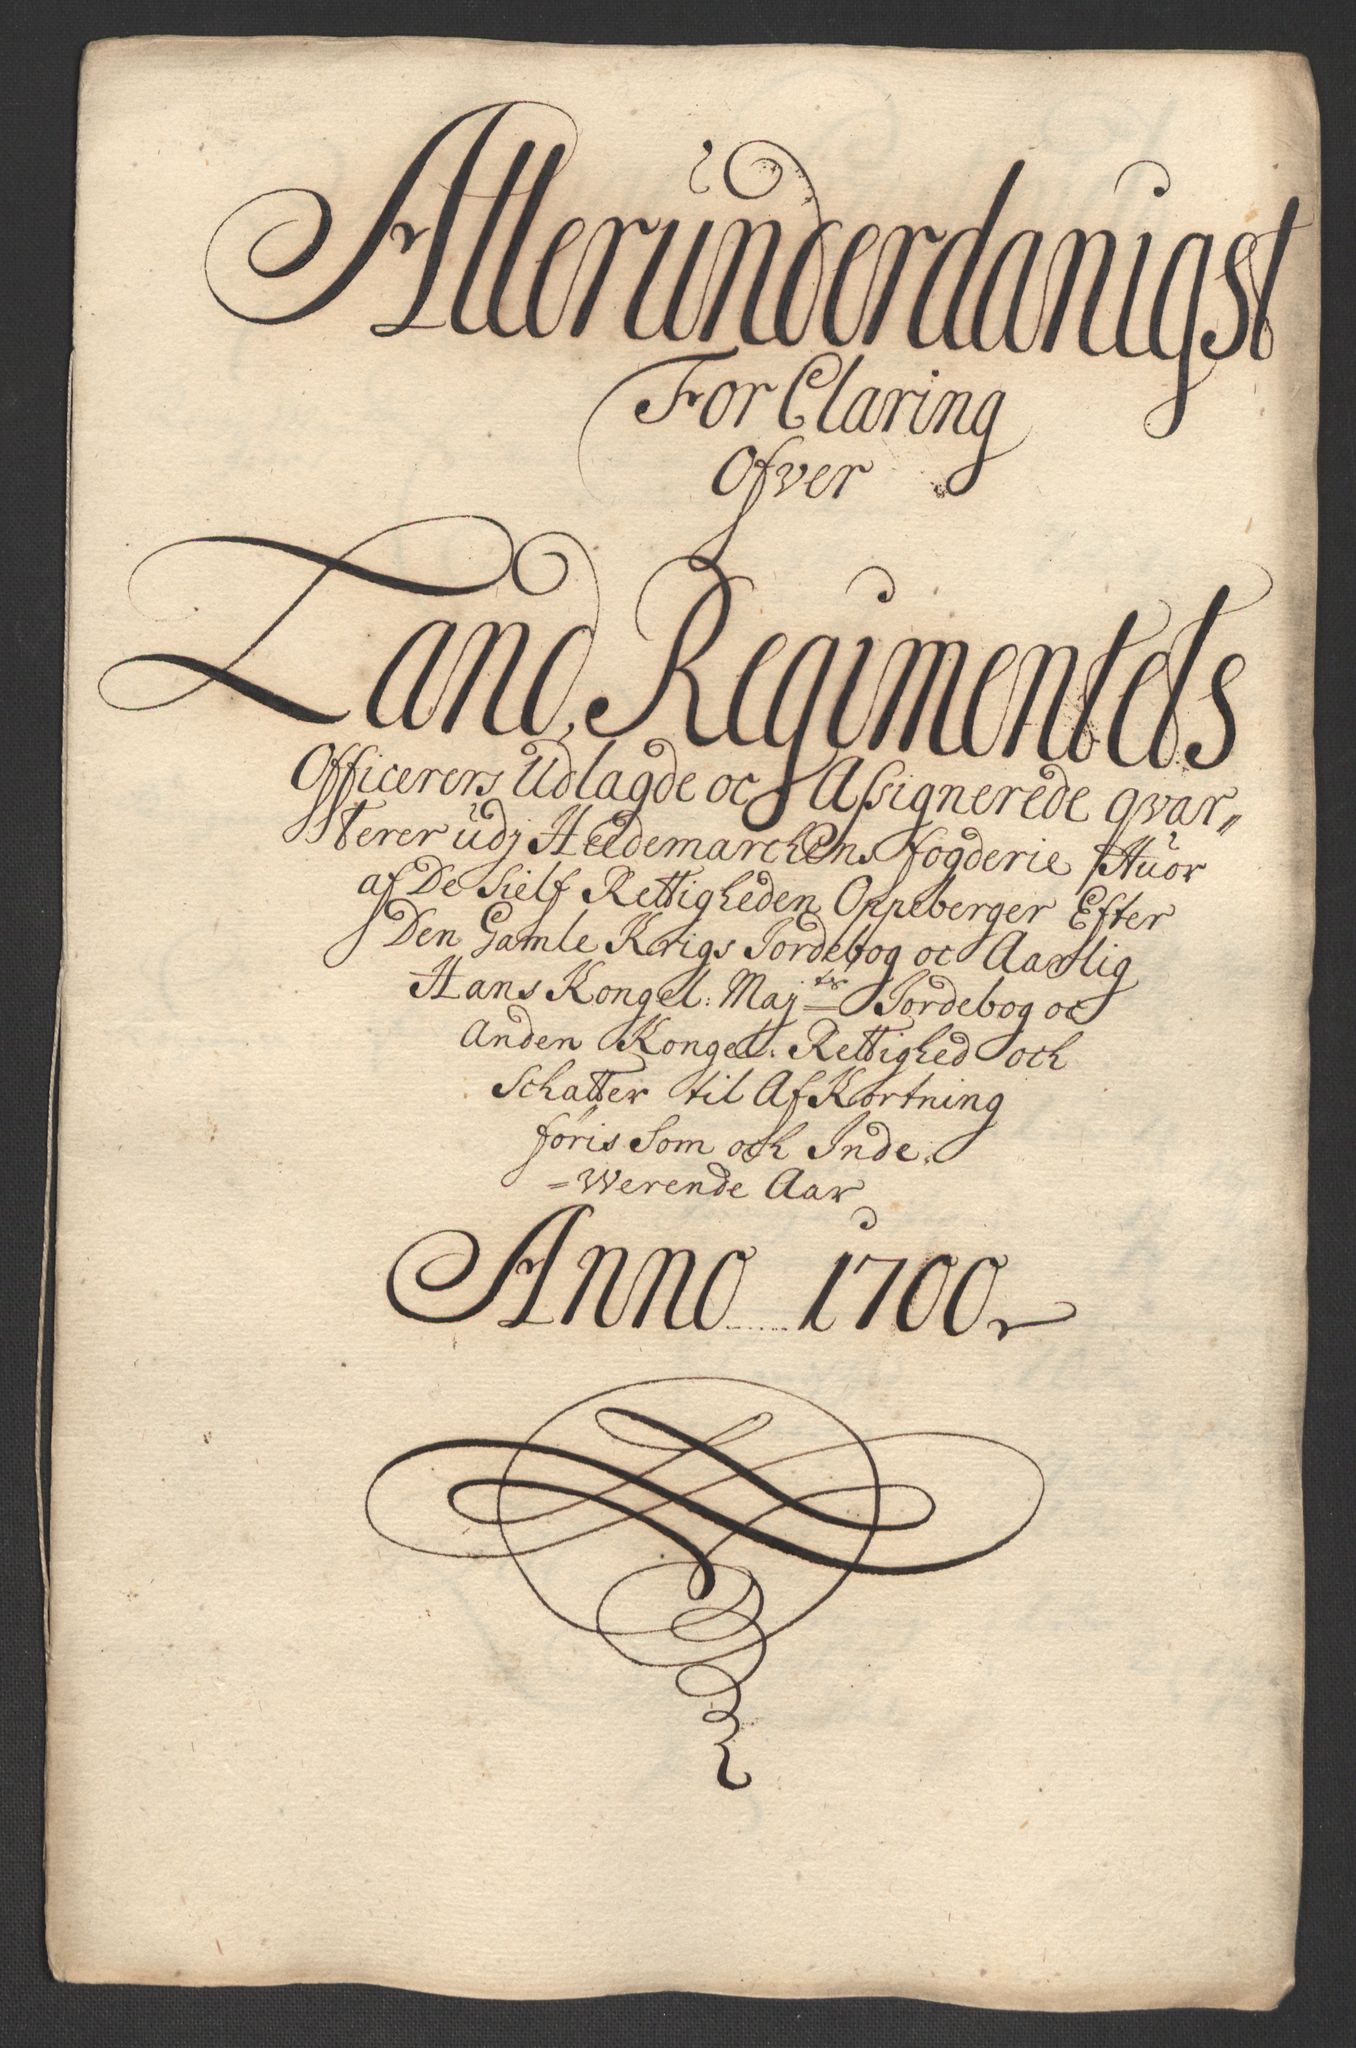 Alleründerdanigst
ForClaring
Ofver
Land Regimentets
Officerers Udlagde oc Assignerede qvar„
terer udj Hedemarchens fogderie Huor
af De Sielf Rettigheden Oppeberger Efter
Den Gamle Krigs Jordebog oc Aarlig
Hans Kongel: Majts Jordebog oc
Anden Kongel: Rettighed och
Schatter til AfKortning
föris Som och Inde,
=Werende Aar
Anno 1700